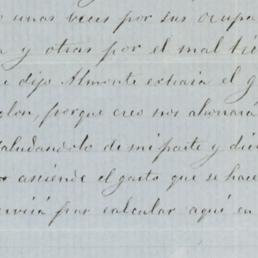 unas veces por sus ocupa
y otras por el mal
dijo Almonte extraia el g
porque creo nos ahorrará
saludandolo de mi parte y
asciende el gasto que se hace
para calcular aquí en